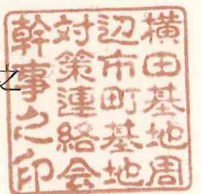 横田基地周
辺市町基地
対策連絡会
幹事之印
之